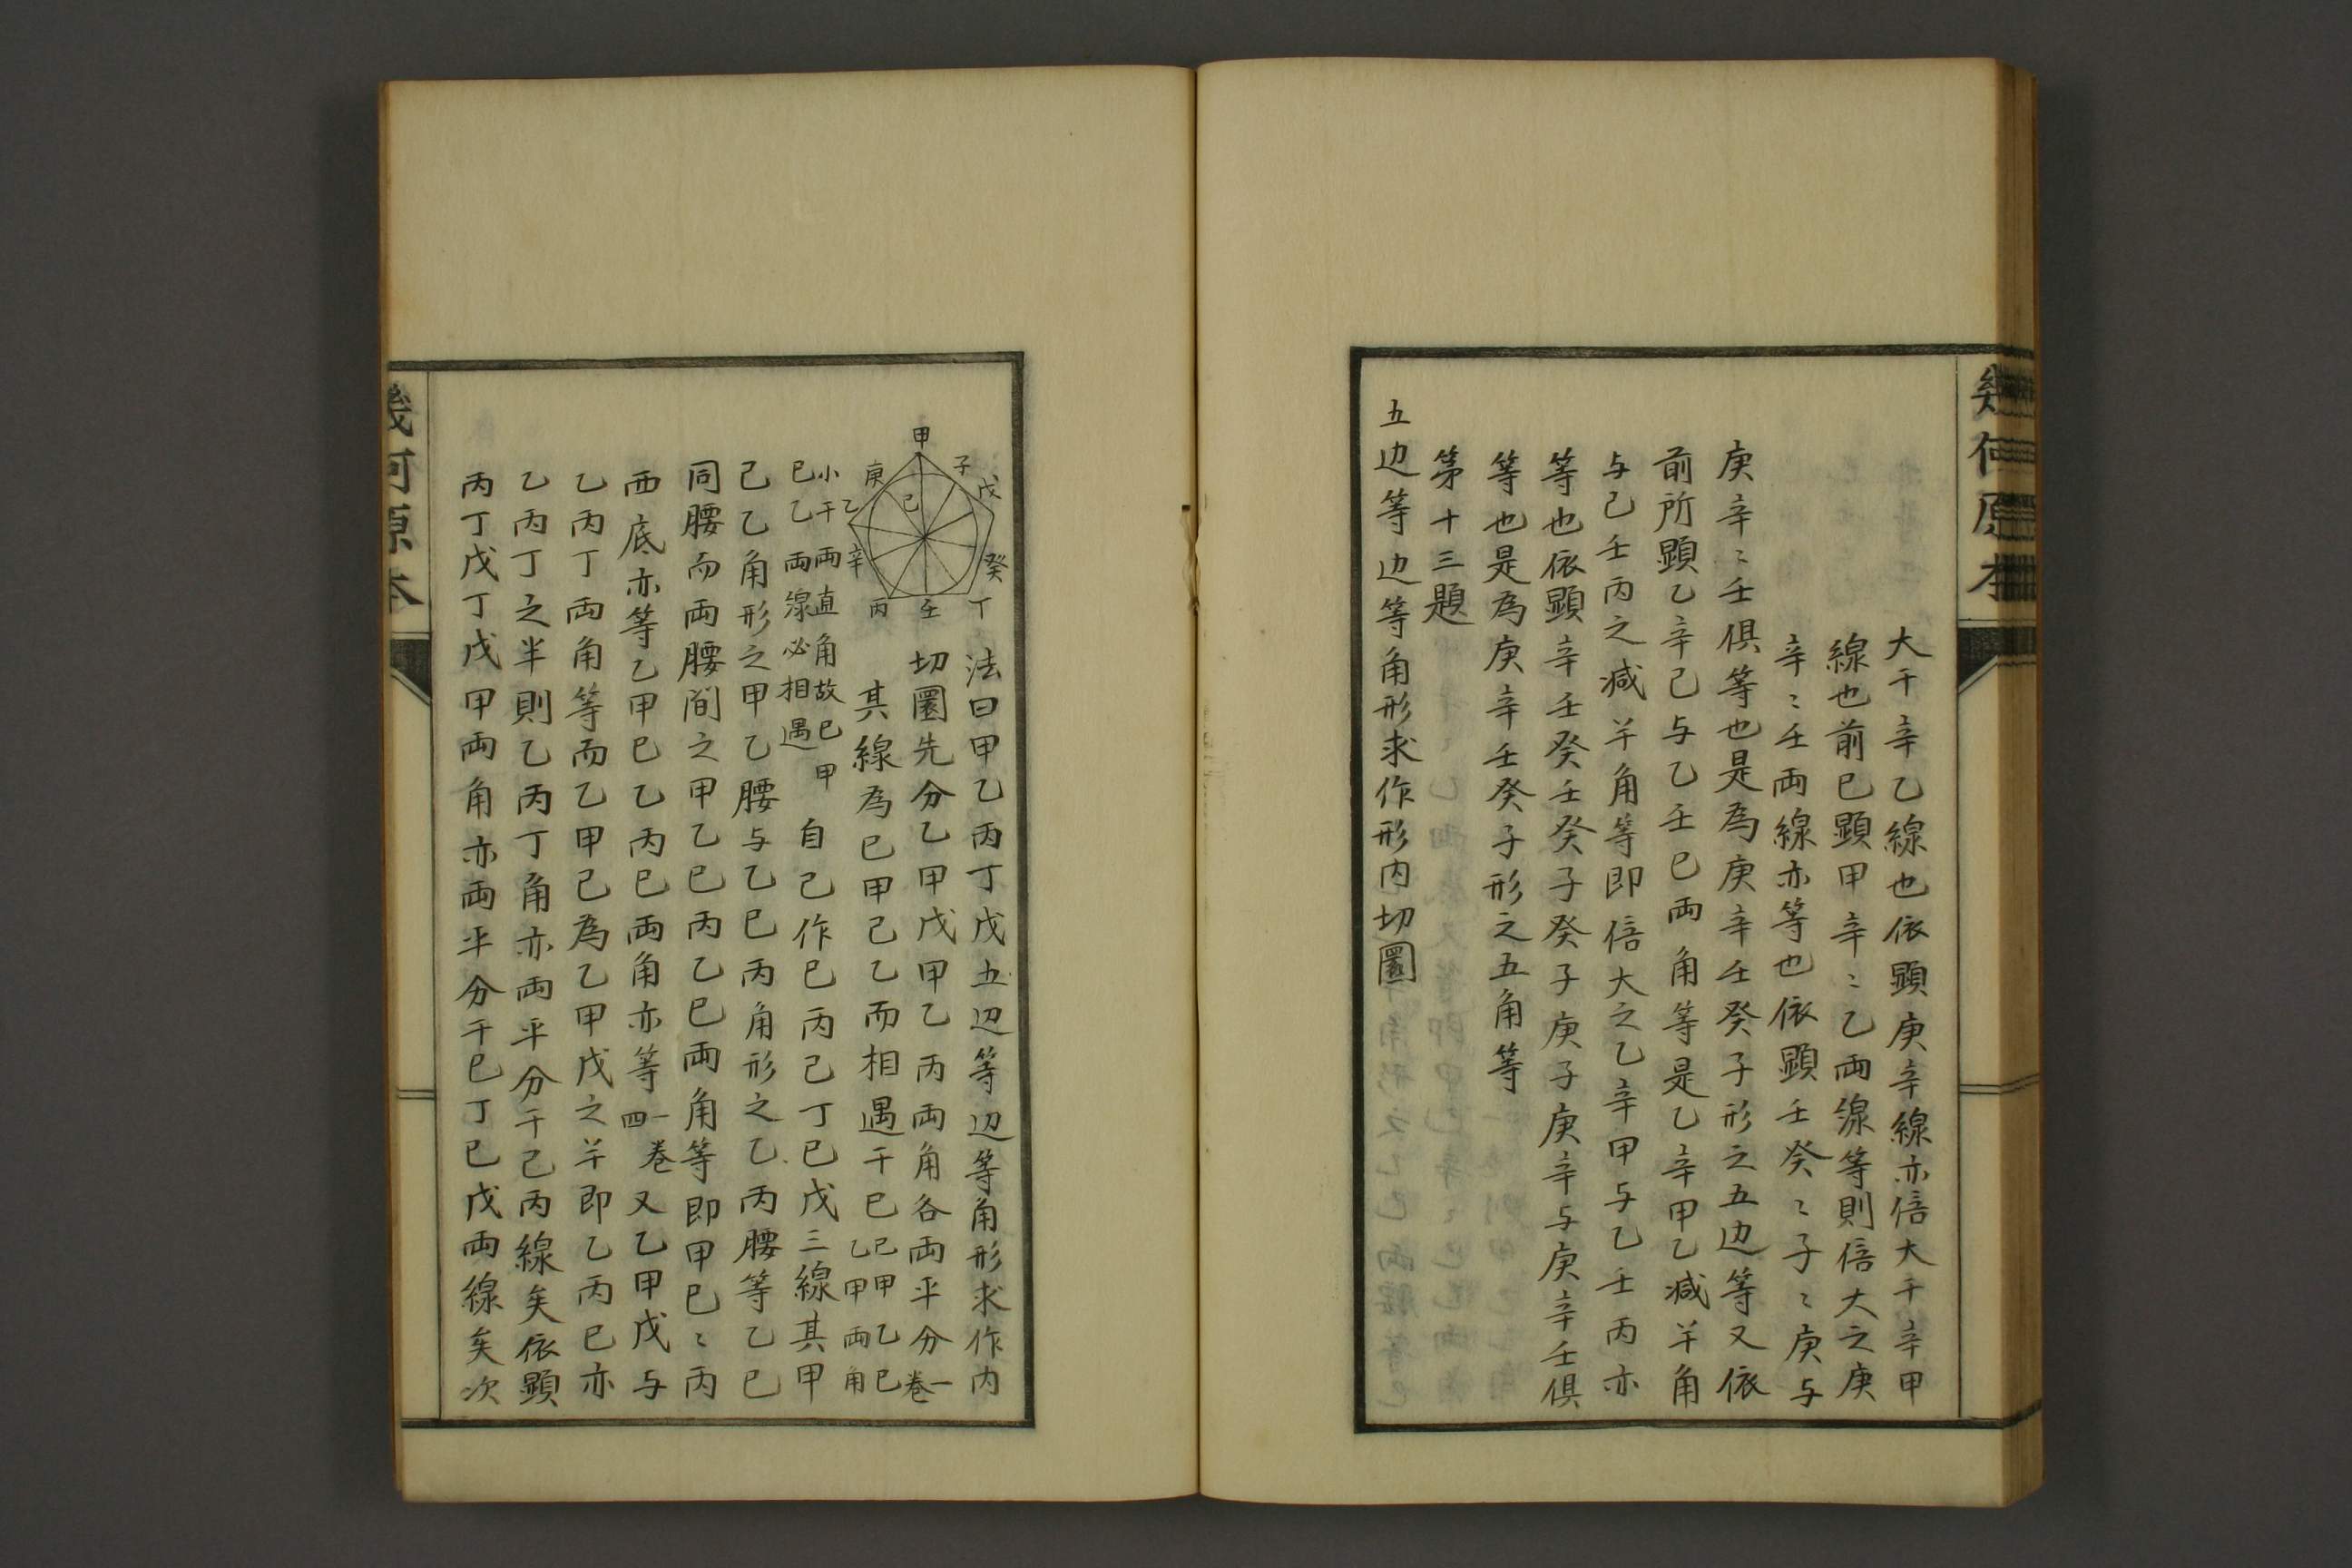 幾何原本
大于辛乙線也依顕庚辛線亦倍大于辛甲
線也前已顕甲辛〻乙両線等則倍大之庚
辛〻壬両線亦等也依顕壬癸〻子〻庚与
庚辛〻壬俱等也是為庚辛壬癸子形之五边等又依
前所顕乙辛己与乙壬巳両角等是乙辛甲乙减半角
与己壬丙之减半角等即倍大之乙辛甲与乙壬丙亦
等也依顕辛壬癸壬癸子癸子庚子庚辛与庚辛壬俱
等也是為庚辛壬癸子形之五角等
第十三題
五边等边等角形求作形内切圜
甲
子
戊
庚
己
乙
辛
癸
丙
壬
丁
法曰甲乙丙丁戊五边等边等角形求作内
切圜先分乙甲戊甲乙丙両角各両平分一卷
其線為巳甲己乙而相遇于巳己甲乙巳乙甲両角
小于両直角故巳甲巳乙両線必相遇自己作巳丙己丁巳戊三線其甲
己乙角形之甲乙腰与乙巳丙角形之乙丙腰等乙巳
同腰而両腰間之甲乙巳丙乙巳両角等即甲巳〻丙
両底亦等乙甲巳乙丙巳両角亦等一卷四又乙甲戊与
乙丙丁両角等而乙甲己為乙甲戊之半即乙丙巳亦
乙丙丁之半則乙丙丁角亦両平分于己丙線矣依顕
丙丁戊丁戊甲両角亦両平分于巳丁巳戊両線矣次
幾何原本